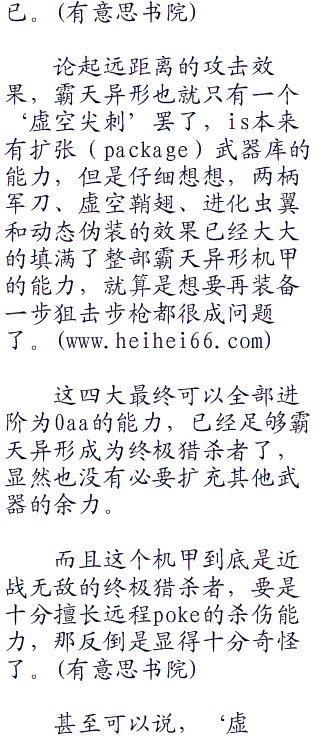 已。(有意思书院)
论起远距离的攻击效
果，霸天异形也就只有一个
‘虚空尖刺’罢了，is本来
有扩张（package）武器库的
能力，但是仔细想想，两柄
军刀、虚空鞘翅、进化虫翼
和动态伪装的效果已经大大
的填满了整部霸天异形机甲
的能力，就算是想要再装备
一步狙击步枪都很成问题
了。(www.heihei66.com)
这四大最终可以全部进
阶为0aa的能力，已经足够霸
天异形成为终极猎杀者了，
显然也没有必要扩充其他武
器的余力。
而且这个机甲到底是近
战无敌的终极猎杀者，要是
十分擅长远程poke的杀伤能
力，那反倒是显得十分奇怪
了。(有意思书院)
甚至可以说，‘虚